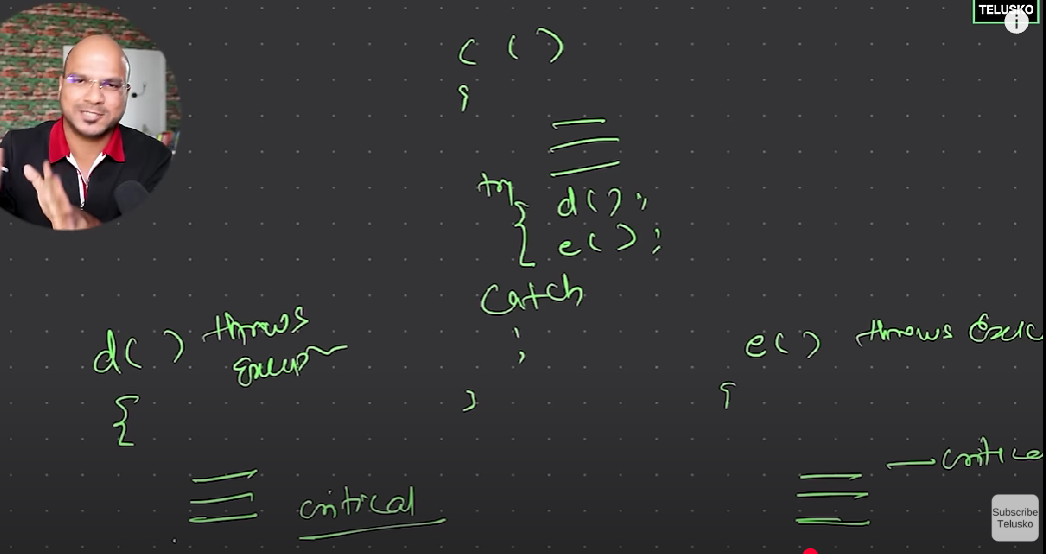 TELUSKO
c ( )
{
try
{ d( ) ;
e( ) ;
catch
}
d( ) throws
{
critical
e( ) throws
{
critical
Subscribe
Telusko